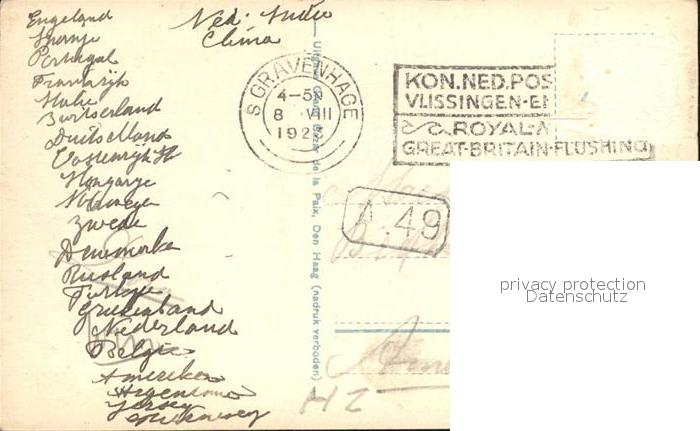 Engeland
Spanje
Portugal
Frankrijk
Italie
Zwitserland
Duitschland
Oostenrijk H
Hongarije
Noorwegen
Zweden
Denemarken
Rusland
Turkije
Griekenland
Nederland
Belgie
Amerika
Argentinie
Jersey
Guernsey
Ned. Indie
China
'S GRAVENHAGE
4-5N
8 VIII
192
KON.NED.POS
VLISSINGEN-EN
ROYAL-M
GREAT-BRITAIN-FLUSHING
A.49
de la Paix, Den Haag (nadruk verboden)
HZ
privacy protection
Datenschutz